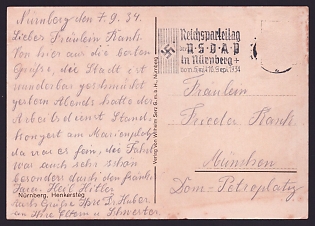 Nürnberg den 7.9.34.
Liebes Fräulein Kankl.
Von hier aus die besten
Grüße, die Stadt ist
wunderbar geschmückt
gestern Abends hatte der
Arbeitsdienst Stand-
Konzert am Marienplatz
da war es fein, die Fahrt
war auch sehr schön
besonders durch den fränk.
Jura. Heil Hitler
Grüße Ihre D. Huber
an Ihre Eltern u. Schwester.
Nürnberg, Henkersteg
Verlag von Wilhelm Serz G. m. b. H., Nürnberg
Reichsparteitag
der N·S·D·A·P
in Nürnberg
vom 4. bis 10. Sept. 1934
Fräulein
Frieda Kankl.
München
Dom-Petroplatz